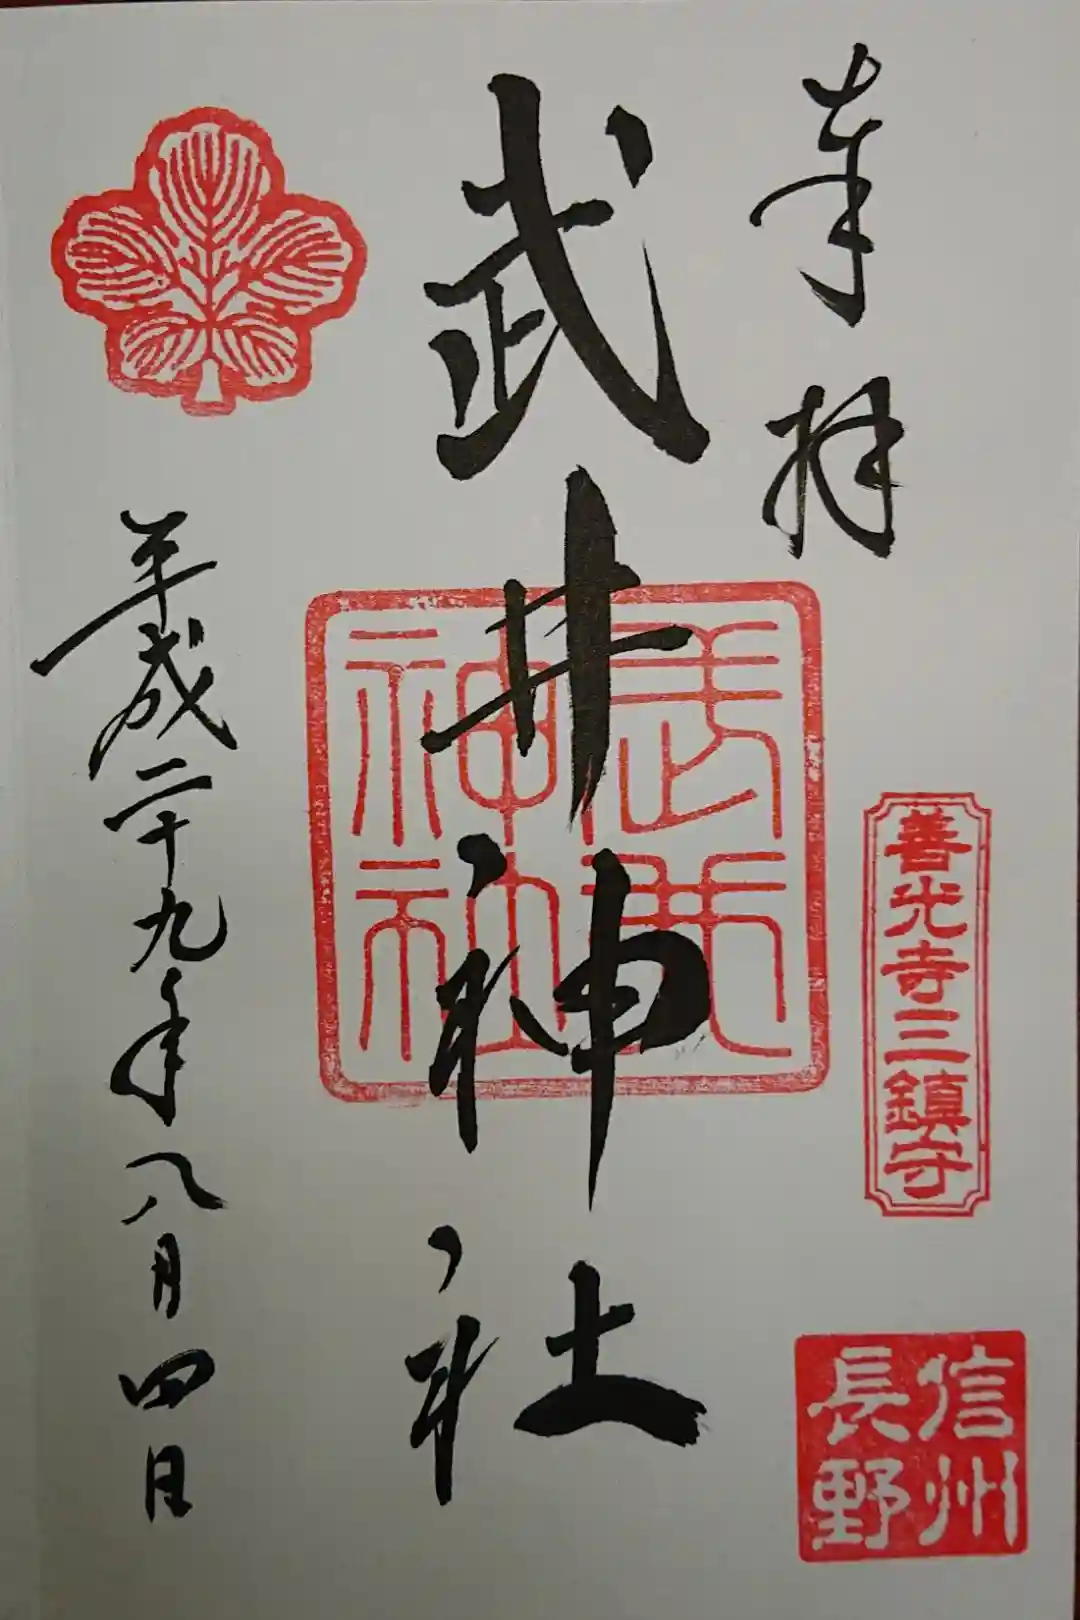 奉拝
善光寺三鎮守
信州
長野
武井神社
武井
神社
平成二十九年八月四日